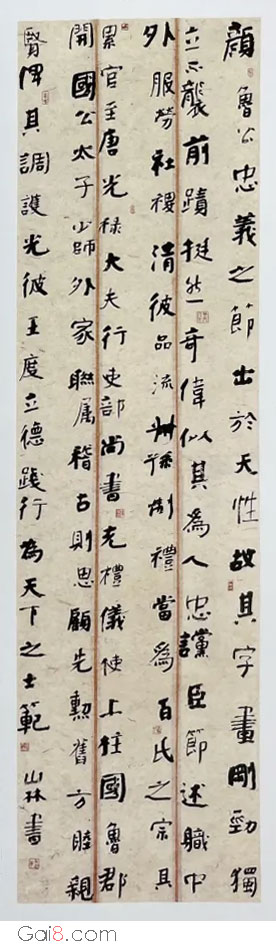 顔魯公忠義之節出於天性故其字畫剛勁獨
立不襲前蹟挺然奇偉似其為人忠讜臣節述職中
外服勞社稷清彼品流叔孫制禮當為百氏之宗具
累官至唐光祿大夫行吏部尚書充禮儀使上柱國魯郡
開國公太子少師外家聯属稽古則思顧先勲舊方睦親
賢俾其調護光彼王度立德踐行為天下之士範 山林書
Gai8.com